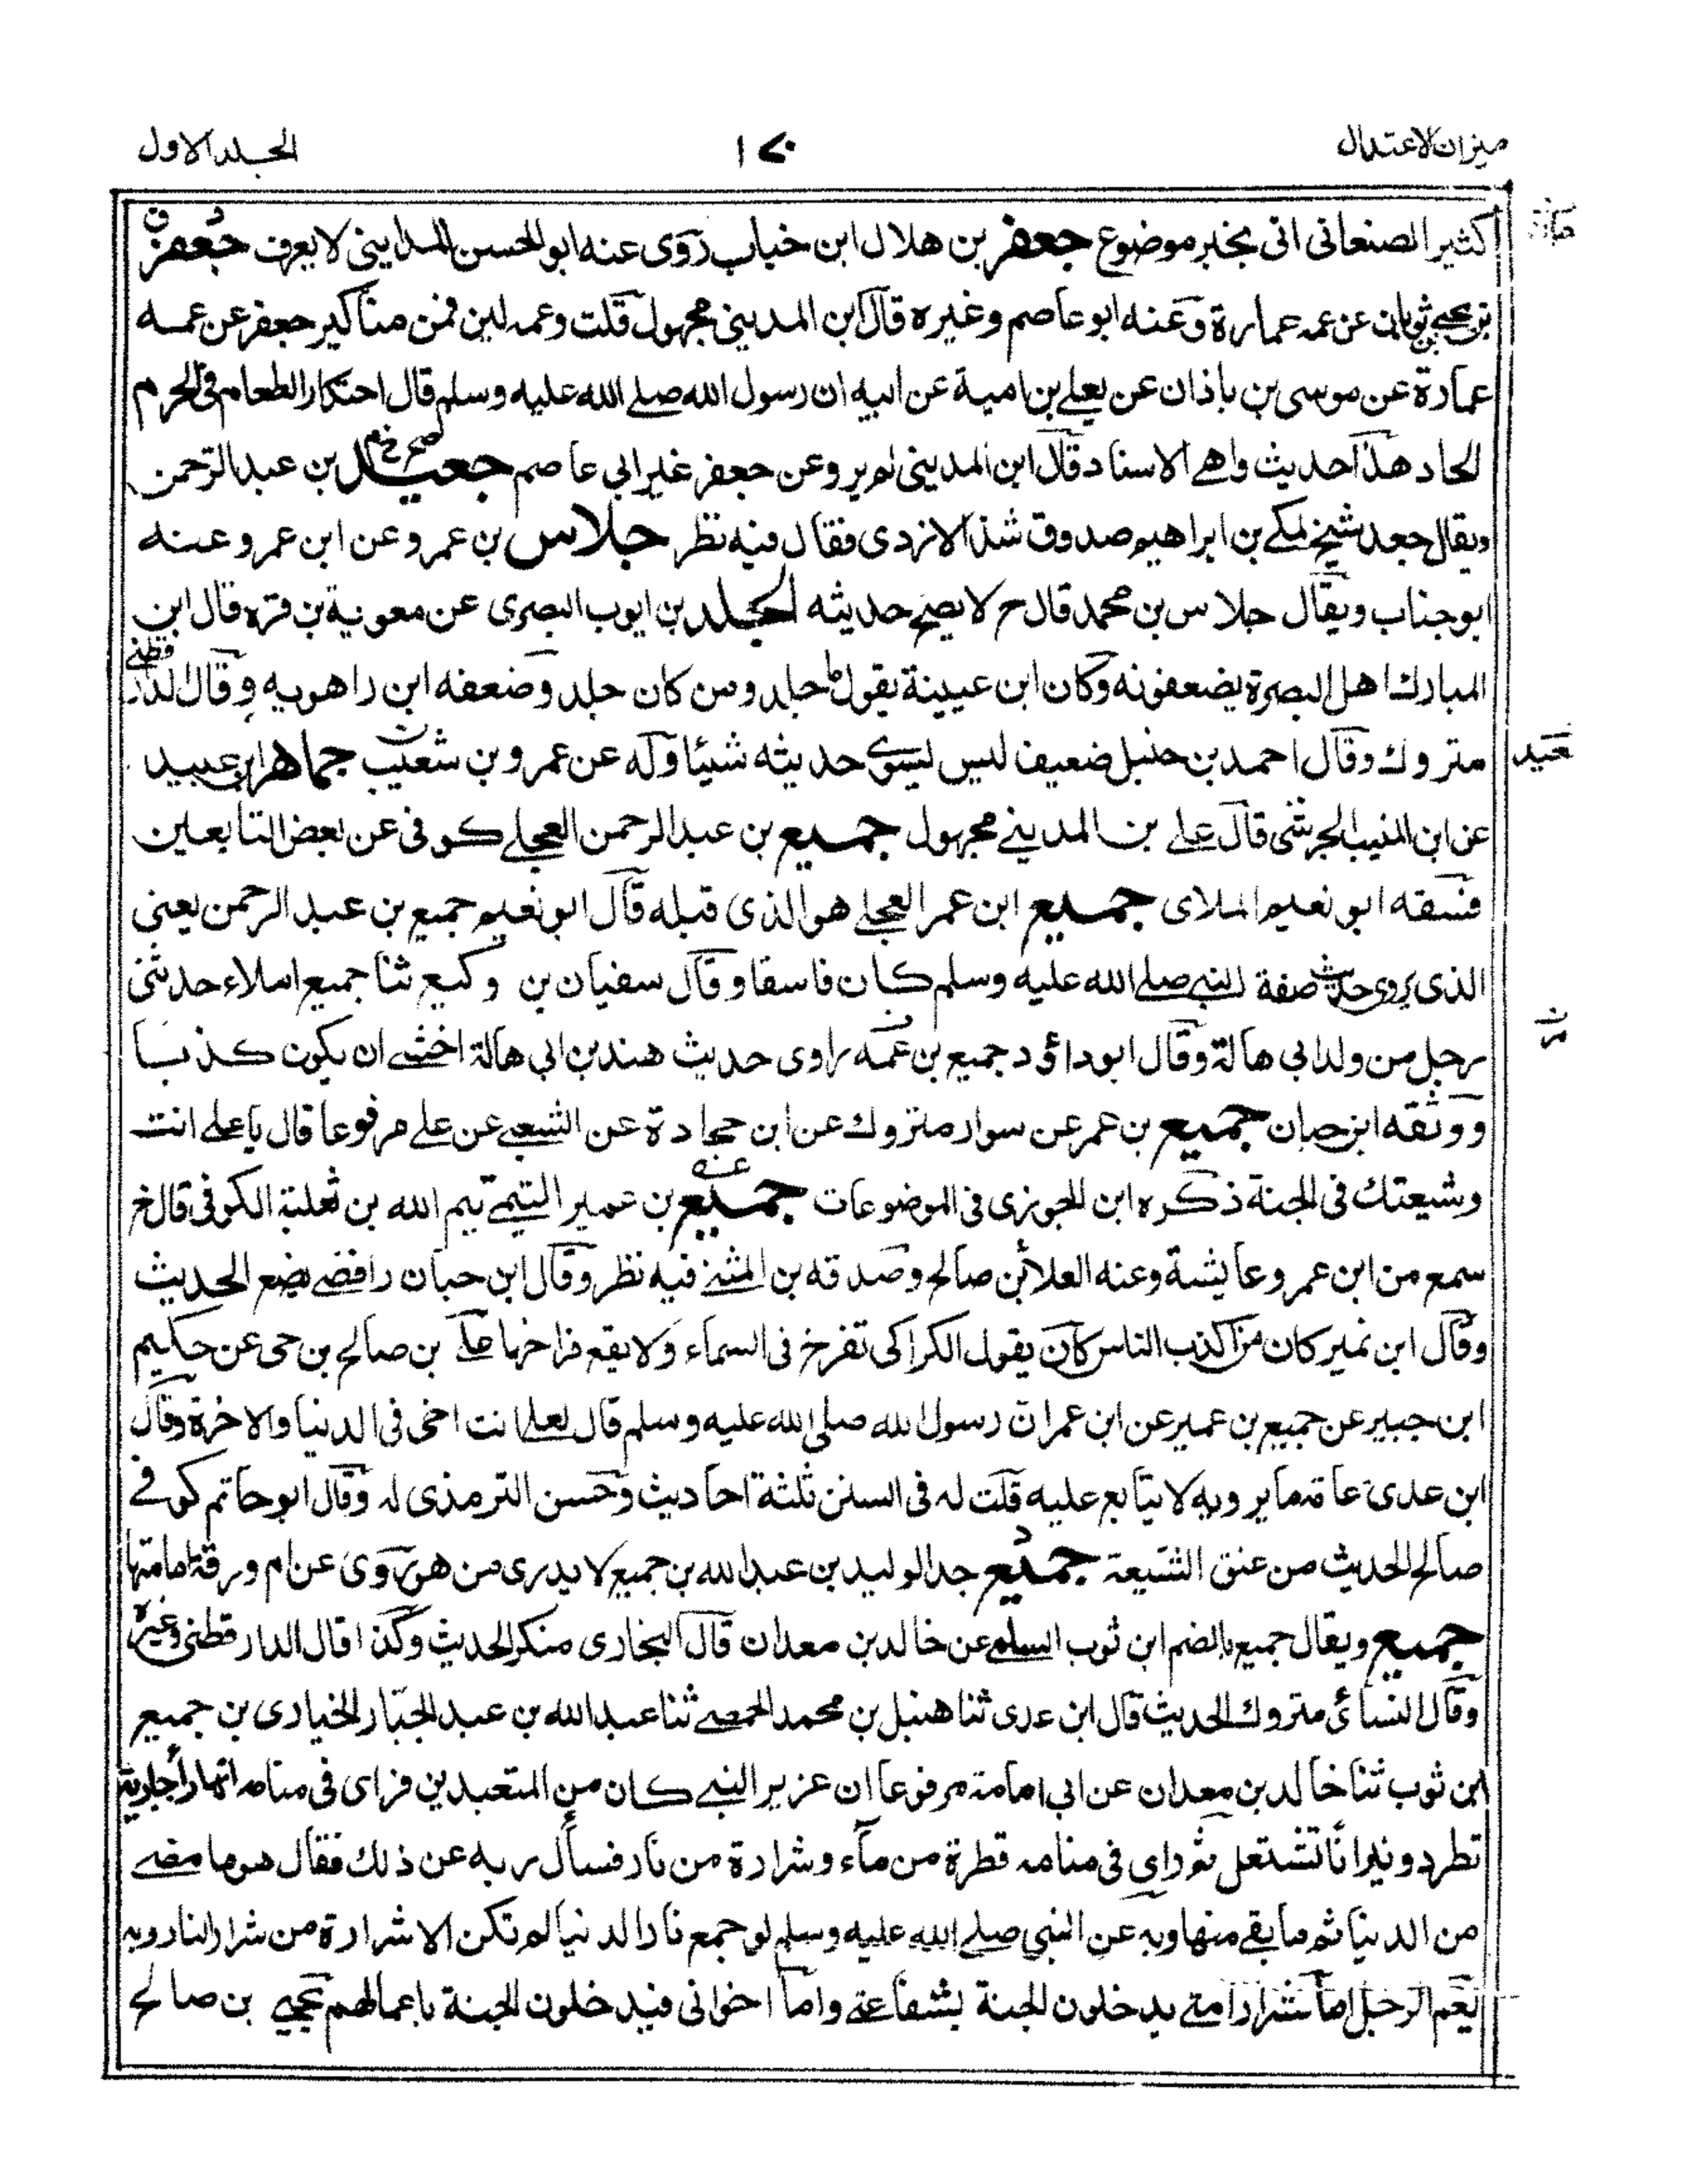 ميزان الاعتدال
١٧٠
الجلد الاول
كثير الصنعانى اتى بخبر موضوع جعفر بن هلال ابن خباب روى عنه ابو الحسن المداينى لا يعرف جعفر
بن يحيى بن ثوبان عن عمه عمارة وعنه ابو عاصم وغيره قال ابن المدينى مجهول قلت وعمه لين فمن مناكير جعفر عن عمه
عمارة عن موسى بن باذان عن يعلى بن امية عن ابيه ان رسول الله صلى الله عليه وسلم قال احتكار الطعام فى الحرم
الحاد هذا حديث واهى الاسناد قال ابن المدينى لم يرو عن جعفر غير ابى عاصم جعيد بن عبد الرحمن
صح خ م
ويقال جعد شيخ لمكى بن ابراهيم صدوق شذ الازدى فقال فيه نظر جلاس بن عمرو عن ابن عمر وعنه
ابو جناب ويقال جلاس بن محمد قال خ لا يصح حديثه الجلد بن ايوب البصرى عن معوية بن قره قال ابن
المبارك اهل البصرة يضعفونه وكان ابن عيينة يقول جلد ومن كان جلد وضعفه ابن راهويه وقال الدارقطنى
متروك وقال احمد بن حنبل ضعيف ليس يسوى حديثه شيئا وله عن عمرو بن شعيب جماهر ابن عبيد
عن ابن المنيب الجرشى قال على بن المدينى مجهول جميع بن عبد الرحمن العجلى كوفى عن بعض التابعين
فسقه ابو نعيم الملاى جميع ابن عمر العجلى هو الذى قبله قال ابو نعيم جميع بن عبد الرحمن يعنى
الذى يروى حديث صفة النبى صلى الله عليه وسلم كان فاسقا وقال سفيان بن وكيع ثنا جميع املاء حدثنى
رجل من ولد ابى هالة وقال ابو داؤد جميع بن عمه راوى حديث هند بن ابى هالة اخشى ان يكون كذبا
ووثقه ابن حبان جميع بن عمر عن سوار متروك عن ابن جحادة عن الشعبى عن على مرفوعا قال يا على انت
وشيعتك فى الجنة ذكره ابن الجوزى فى الموضوعات جميع بن عمير التيمى تيم الله بن ثعلبة الكوفى قال خ
عه
سمع من ابن عمر وعايشة وعنه العلا بن صالح وصدقه بن المثنى فيه نظر وقال ابن حبان رافضى يضع الحديث
وقال ابن نمير كان من اكذب الناس كان يقول الكراكى تفرخ فى السماء ولا يقع فراخها على بن صالح بن حى عن حكيم
ابن جبير عن جميع بن عمير عن ابن عمر ان رسول الله صلى الله عليه وسلم قال لعلى انت اخى فى الدنيا والاخرة وقال
ابن عدى عامة ما يرويه لا يتابع عليه قلت له فى السنن ثلثة احاديث وحسن الترمذى له وقال ابو حاتم كوفى
صالح الحديث من عنق الشيعة جميع جد الوليد بن عبد الله بن جميع لا يدرى من هو روى عن ام ورقة امامتها
جميع ويقال جميع بالضم ابن ثوب السلمى عن خالد بن معدان قال البخارى منكر الحديث وكذا قال الدارقطنى وغيره
وقال النسائى متروك الحديث قال ابن عدى ثنا هنبل بن محمد الحمصى ثنا عبد الله بن عبد الجبار الخبارى بن جميع
ابن ثوب ثنا خالد بن معدان عن ابى امامة مرفوعا ان عزير النبى كان من المتعبدين فراى فى منامه انهارا جارية
تطرد ونيرانا تشتعل ثم راى فى منامه قطرة من ماء وشرارة من نار فسأل ربه عن ذلك فقال هو ما مضى
من الدنيا ثم ما بقى منها وبه عن النبى صلى الله عليه وسلم لو جمع نار الدنيا لم تكن الا شرارة من شرار النار وبه
نعم الرجل اما شرار امتى يدخلون الجنة بشفاعتى واما اخوانى فيدخلون الجنة باعمالهم يحيى بن صالح